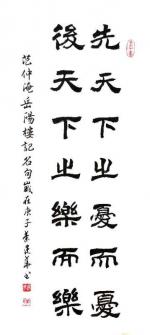 先天下之憂而憂
後天下之樂而樂
范仲淹岳陽樓記名句歲在庚子